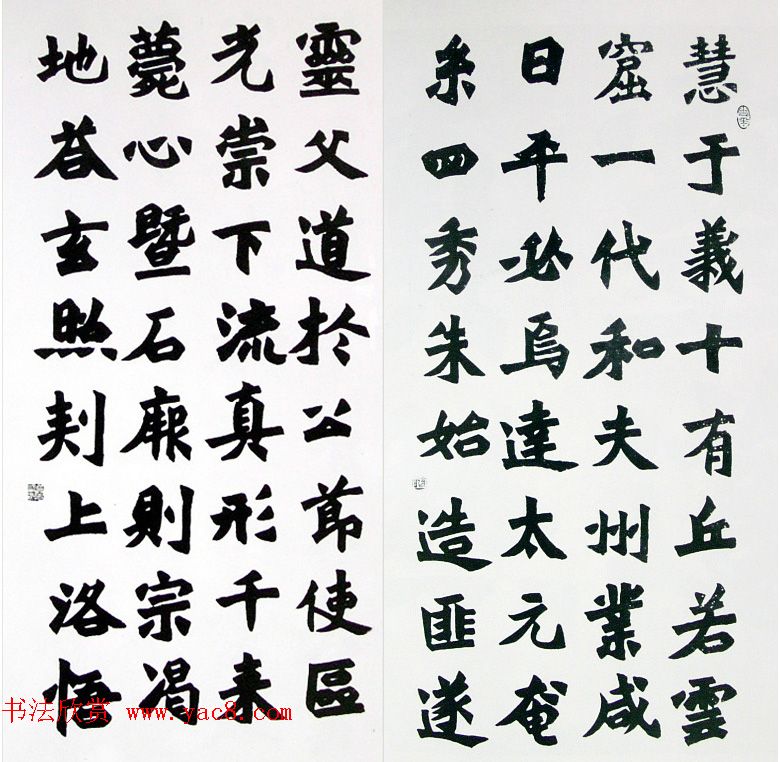 慧于義十有丘若雲
窟一代和夫州業咸
日平必焉達太元奄
糸四秀朱始造匪遂
靈父道於公節使區
光崇下流真形千来
薨心暨石厥則宗渴
地答玄照刾上洛悟
书法欣赏 www.yac8.com